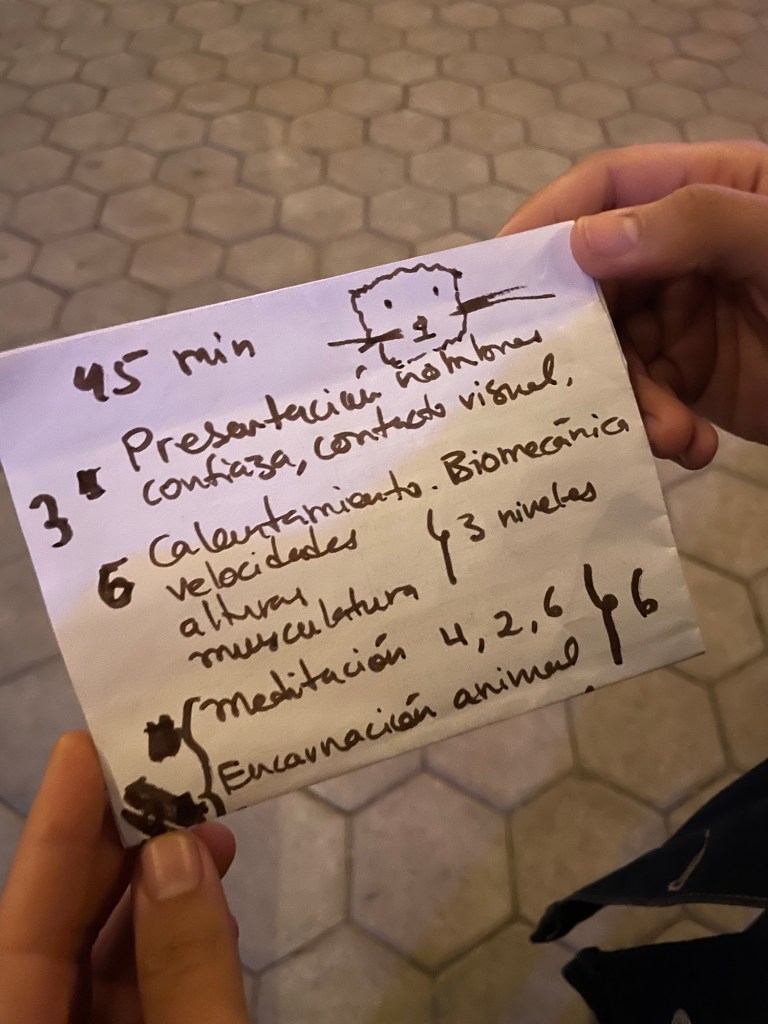 45 min
3 Presentación nombres
confiaza, contacto visual,
6 Calentamiento. Biomecánica
velocidades } 3 niveles
alturas
musculatura
Meditación 4, 2, 6 } 6
Encarnación animal